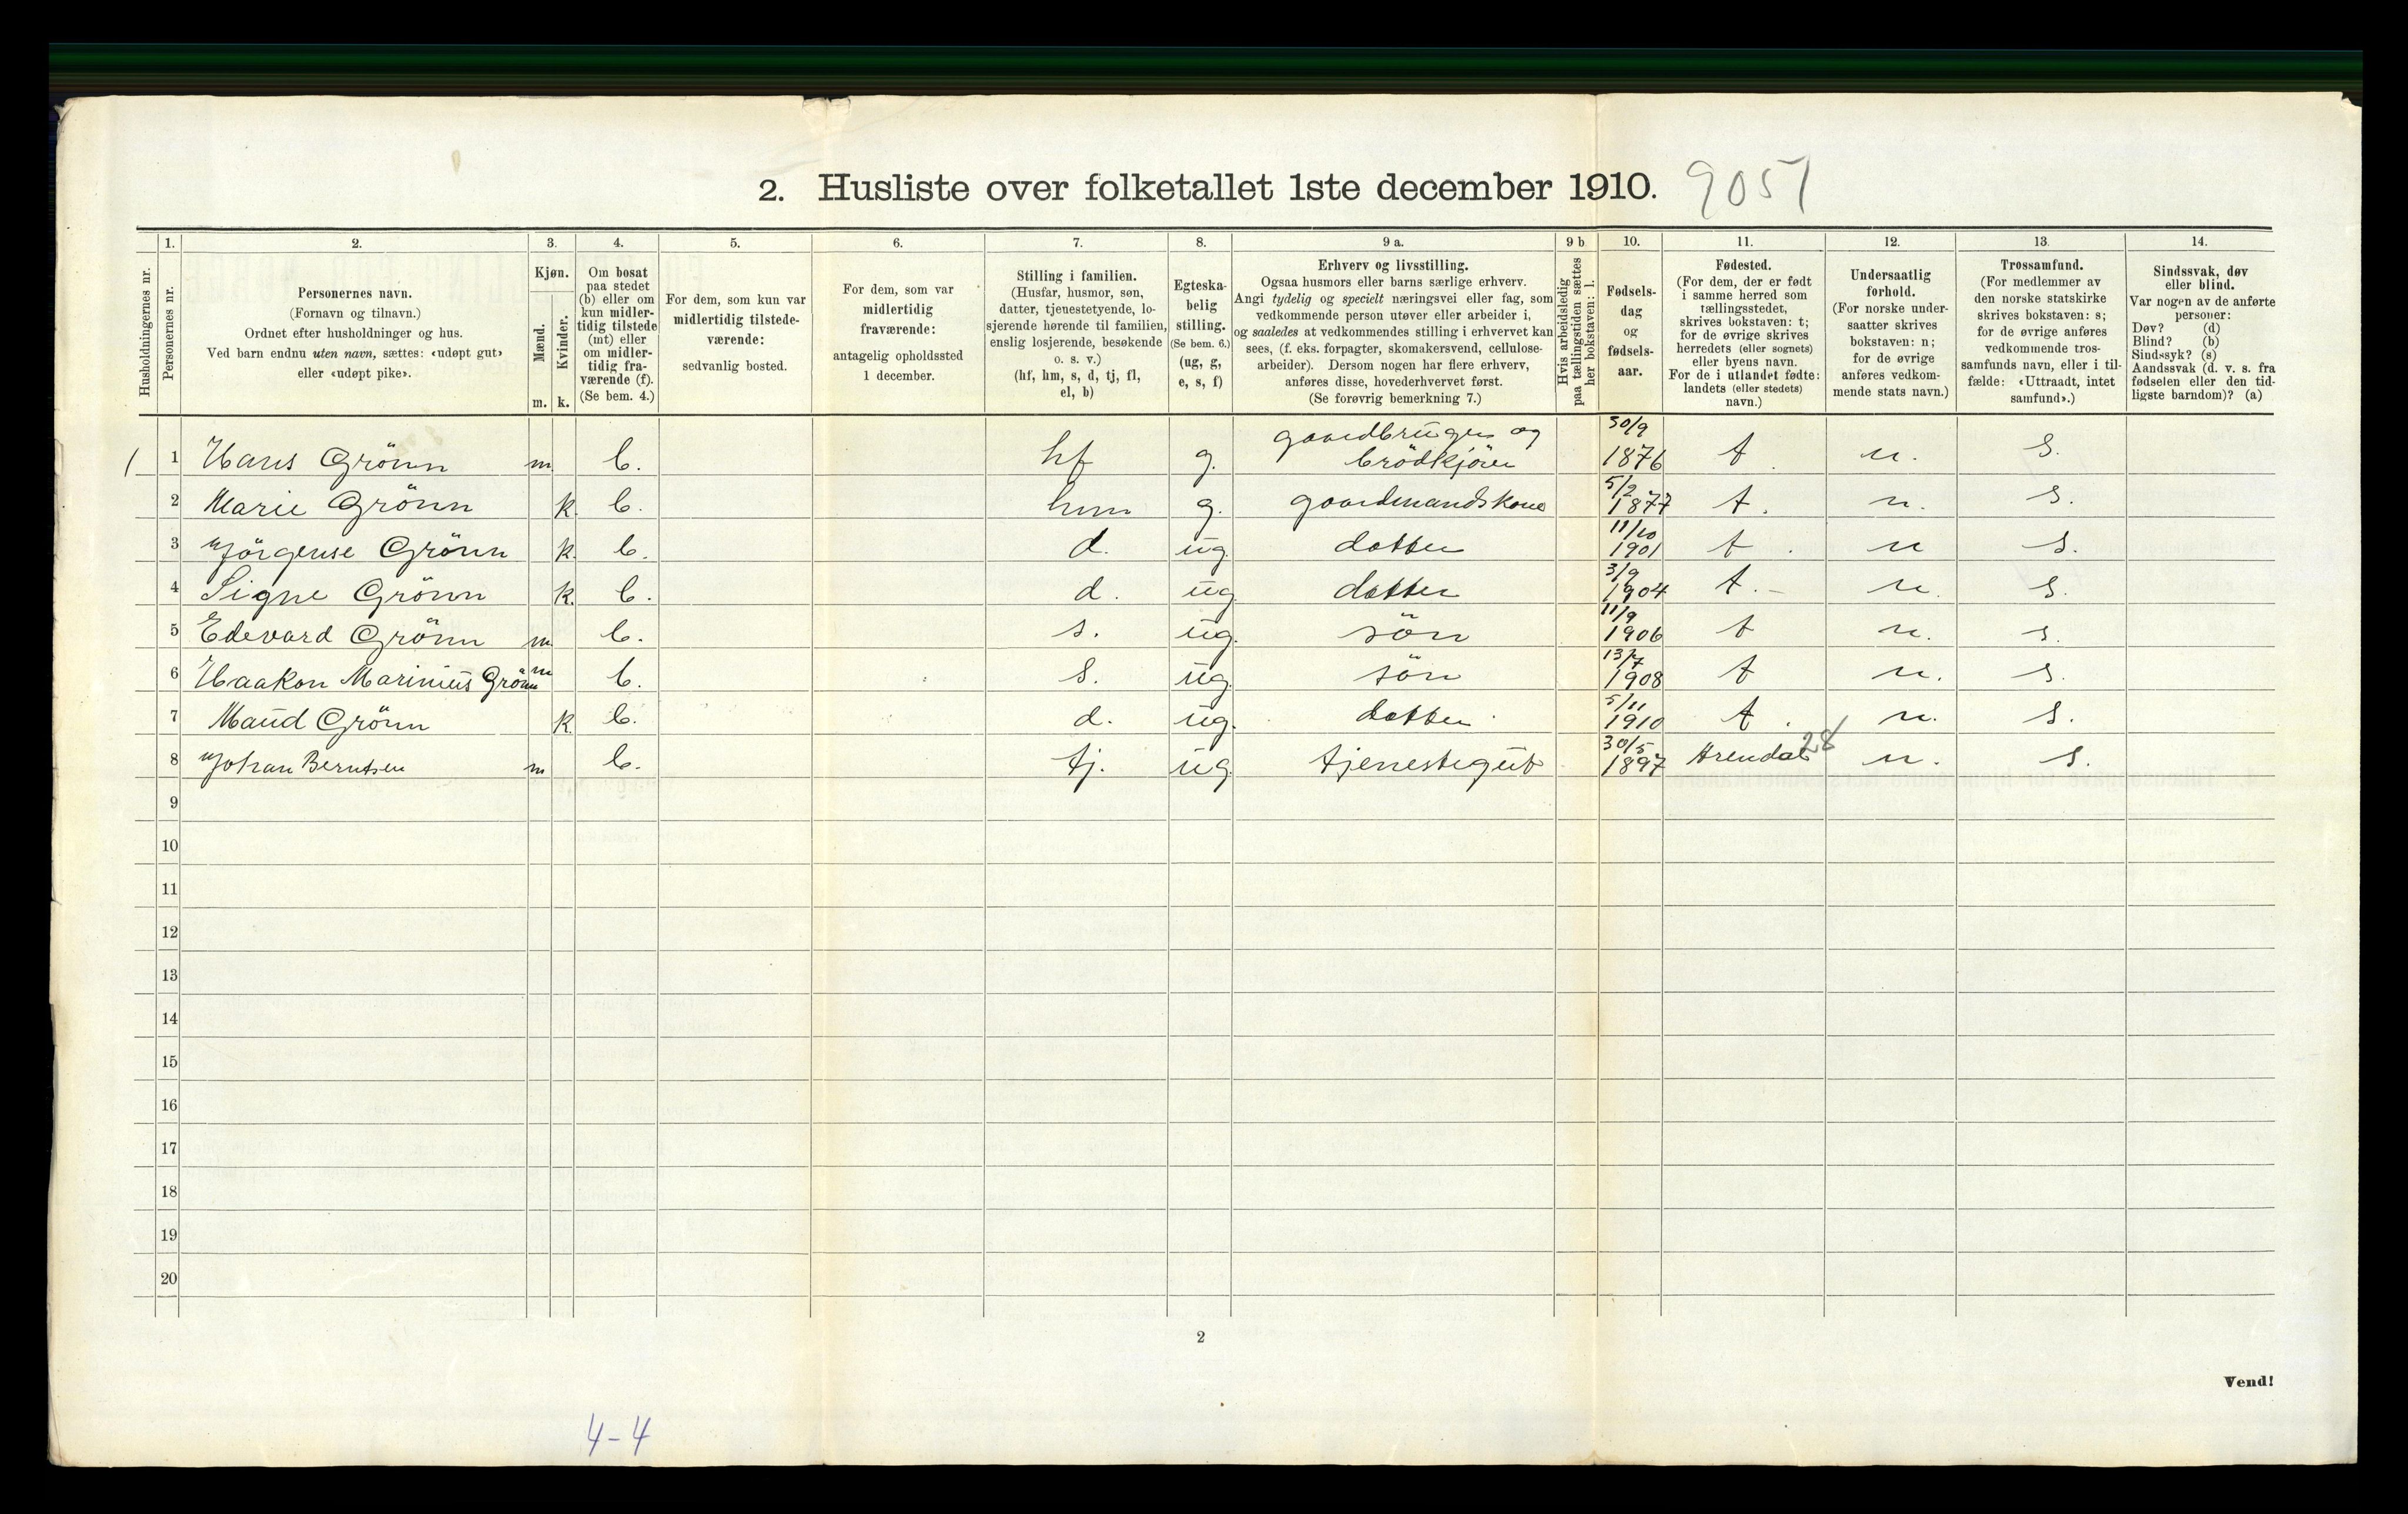 2. Husliste over folketallet 1ste december 1910. 9051
1. 2. 3. 4. 5. 6. 7. 8. 9 a. 9 b 10. 11. 12. 13. 14.
Husholdningernes nr.
Personernes nr.
Personernes navn.
(Fornavn og tilnavn.)
Ordnet efter husholdninger og hus.
Ved barn endnu uten navn, sættes: «udøpt gut»
eller «udøpt pike».
Kjøn.
Mænd.
Kvinder.
m. k.
Om bosat
paa stedet
(b) eller om
kun midler-
tidig tilstede
(mt) eller
om midler-
tidig fra-
værende (f).
(Se bem. 4.)
For dem, som kun var
midlertidig tilstede-
værende:
sedvanlig bosted.
For dem, som var
midlertidig
fraværende:
antagelig opholdssted
1 december.
Stilling i familien.
(Husfar, husmor, søn,
datter, tjenestetyende, lo-
sjerende hørende til familien,
enslig losjerende, besøkende
o. s. v.)
(hf, hm, s, d, tj, fl,
el, b)
Egteska-
belig
stilling.
(Se bem. 6.)
(ug, g,
e, s, f)
Erhverv og livsstilling.
Ogsaa husmors eller barns særlige erhverv.
Angi tydelig og specielt næringsvei eller fag, som
vedkommende person utøver eller arbeider i,
og saaledes at vedkommendes stilling i erhvervet kan
sees, (f. eks. forpagter, skomakersvend, cellulose-
arbeider). Dersom nogen har flere erhverv,
anføres disse, hovederhvervet først.
(Se forøvrig bemerkning 7.)
Hvis arbeidsledig
paa tællingstiden sættes
her bokstaven: l.
Fødsels-
dag
og
fødsels-
aar.
Fødested.
(For dem, der er født
i samme herred som
tællingsstedet,
skrives bokstaven: t;
for de øvrige skrives
herredets (eller sognets)
eller byens navn.
For de i utlandet fødte:
landets (eller stedets)
navn.)
Undersaatlig
forhold.
(For norske under-
saatter skrives
bokstaven: n;
for de øvrige
anføres vedkom-
mende stats navn.)
Trossamfund.
(For medlemmer av
den norske statskirke
skrives bokstaven: s;
for de øvrige anføres
vedkommende tros-
samfunds navn, eller i til-
fælde: «Uttraadt, intet
samfund».)
Sindssvak, døv
eller blind.
Var nogen av de anførte
personer:
Døv? (d)
Blind? (b)
Sindssyk? (s)
Aandssvak (d. v. s. fra
fødselen eller den tid-
ligste barndom)? (a)
1 1 Hans Grönn m. b. hf g. gaardbruger og brödkjörer 30/9 1876 t. n. s.
2 Marie Grönn k. b. hm g. gaardmandskone 5/2 1877 t. n. s.
3 Jörgense Grönn k. b. d. ug. datter 11/10 1901 t. n s.
4 Signe Grönn k. b. d. ug datter 3/9 1904 t. - n. s.
5 Edevard Grönn m. b. s. ug. sön 11/9 1906 t n. s.
6 Haakon Marinius Grönn m b. s. ug. sön 13/7 1908 t n. s.
7 Maud Grönn k. b. d. ug. datter 5/11 1910 t. n. s.
8 Johan Berntsen m b. tj. ug. tjenestegut 30/5 1897 Arendal 28 n. s.
9
10
11
12
13
14
15
16
17
18
19
20
2
Vend!
4-4